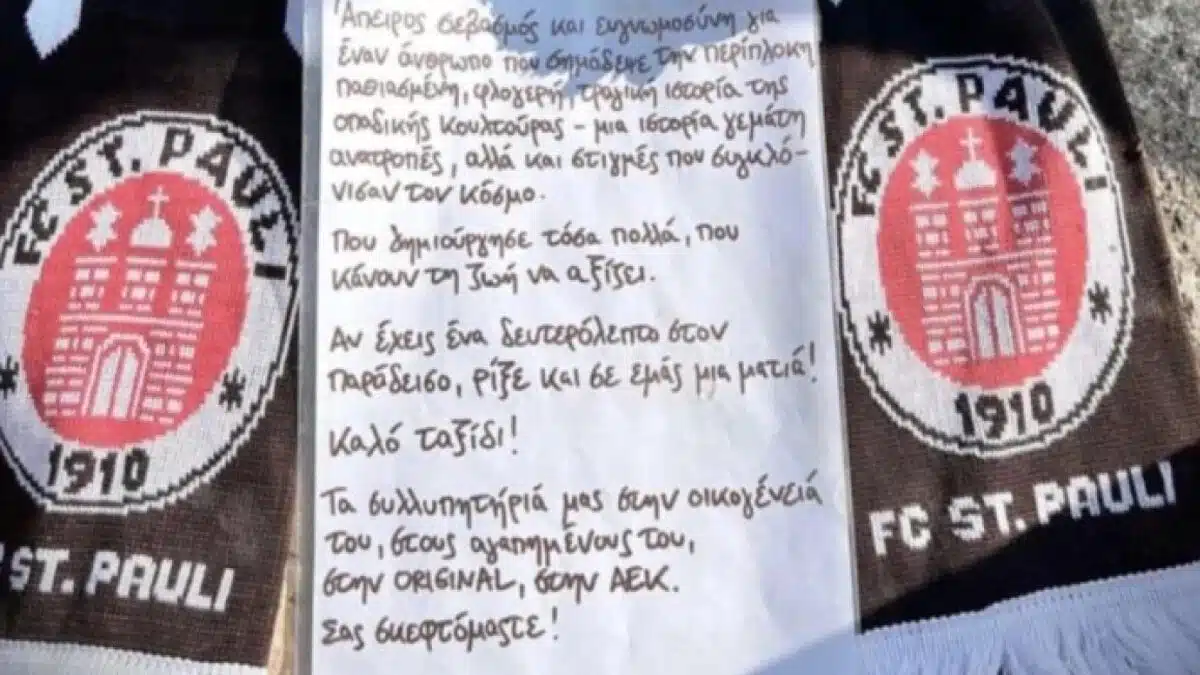 Άπειρος σεβασμός και ευγνωμοσύνη για
έναν άνθρωπο που σημάδεψε την περίπλοκη
παθιασμένη, φλογερή, τραγική ιστορία της
οπαδικής κουλτούρας - μια ιστορία γεμάτη
ανατροπές, αλλά και στιγμές που συγκλό-
νισαν τον κόσμο.
Που δημιούργησε τόσα πολλά, που
κάνουν τη ζωή να αξίζει.
Αν έχεις ένα δευτερόλεπτο στον
παράδεισο, ρίξε και σε εμάς μια ματιά!
Καλό ταξίδι!
Τα συλλυπητήριά μας στην οικογένειά
του, στους αγαπημένους του,
στην ORIGINAL, στην ΑΕΚ.
Σας σκεφτόμαστε!
FC ST. PAULI
1910
ST. PAULI
FC ST. PAULI
1910
FC ST. PAULI